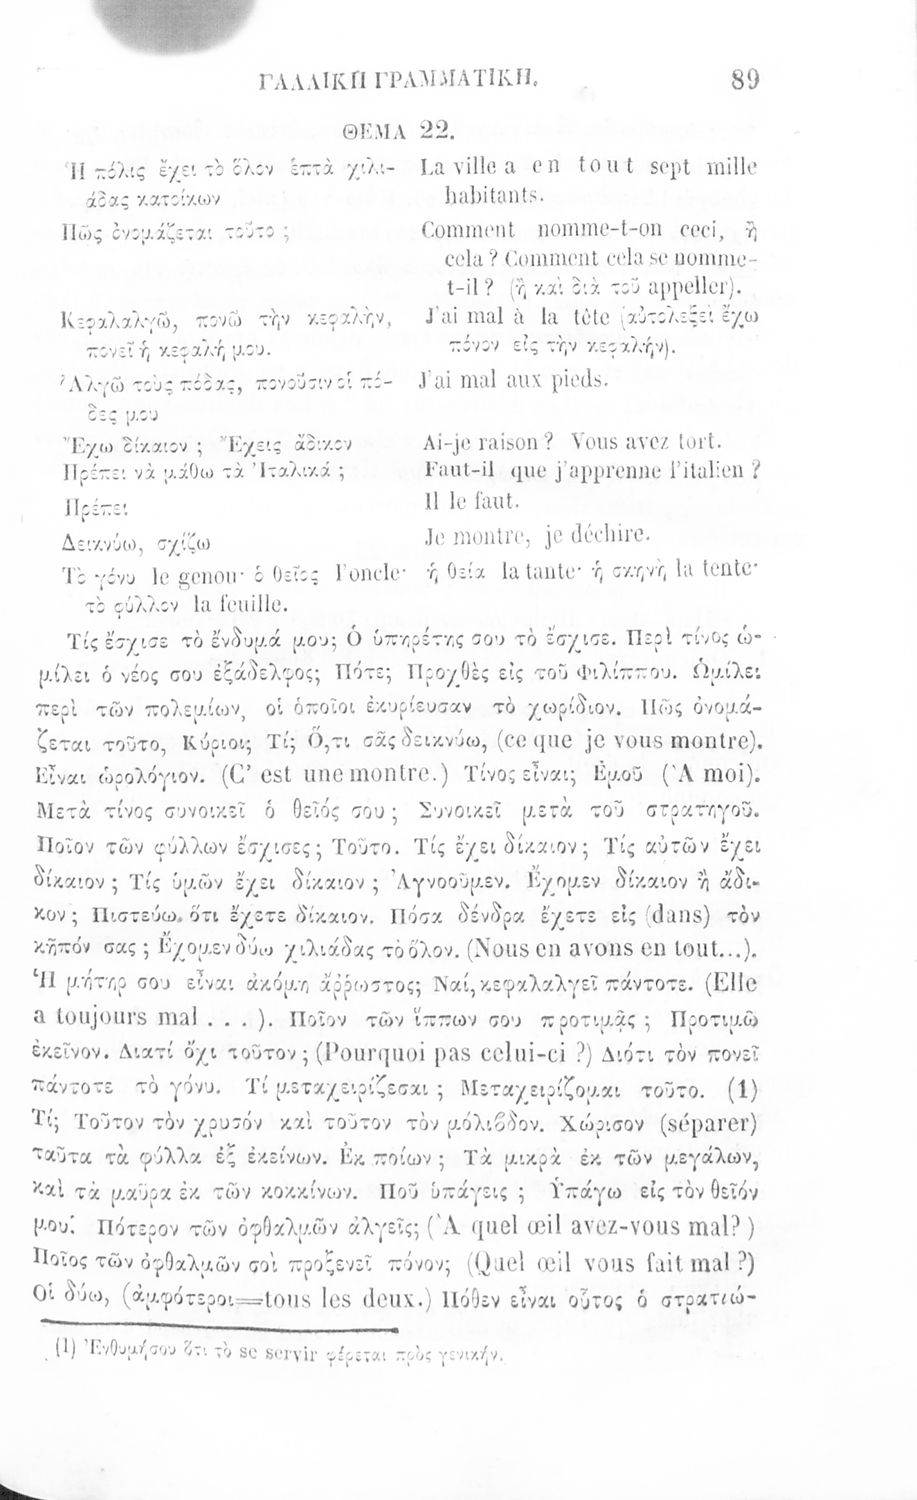 ΓΑΛΛΙΚΗ ΓΡΑΜΜΑΤΙΚΗ. 89
ΘΕΜΑ 22.
Ἡ πόλις ἔχει τὸ ὅλον ἑπτὰ χιλι- La ville a en tout sept mille
άδας κατοίκων habitants.
Πῶς ὀνομάζεται τοῦτο ; Comment nomme-t-on ceci, ἢ
cela ? Comment cela se nomme-
t-il ? (ἢ καὶ διὰ τοῦ appeller).
Κεφαλαλγῶ, πονῶ τὴν κεφαλὴν, J'ai mal à la tête (αὐτολεξεὶ ἔχω
πονεῖ ἡ κεφαλή μου. πόνον εἰς τὴν κεφαλήν).
Ἀλγῶ τοὺς πόδας, πονοῦσιν οἱ πό- J'ai mal aux pieds.
δες μου
Ἔχω δίκαιον ; Ἔχεις ἄδικον Ai-je raison ? Vous avez tort.
Πρέπει νὰ μάθω τὰ Ἰταλικά ; Faut-il que j'apprenne l'italien ?
Πρέπει Il le faut.
Δεικνύω, σχίζω Je montre, je déchire.
Τὸ γόνυ le genou· ὁ θεῖος l'oncle· ἡ θεία la tante· ἡ σκηνὴ la tente·
τὸ φύλλον la feuille.
Τίς ἔσχισε τὸ ἔνδυμά μου; Ὁ ὑπηρέτης σου τὸ ἔσχισε. Περὶ τίνος ὡ-
μίλει ὁ νέος σου ἐξάδελφος; Πότε; Προχθὲς εἰς τοῦ Φιλίππου. Ὡμίλει
περὶ τῶν πολεμίων, οἱ ὁποῖοι ἐκυρίευσαν τὸ χωρίδιον. Πῶς ὀνομά-
ζεται τοῦτο, Κύριοι; Τί; Ὅ,τι σᾶς δεικνύω, (ce que je vous montre).
Εἶναι ὡρολόγιον. (C' est une montre.) Τίνος εἶναι; Ἐμοῦ (A moi).
Μετὰ τίνος συνοικεῖ ὁ θεῖός σου ; Συνοικεῖ μετὰ τοῦ στρατηγοῦ.
Ποῖον τῶν φύλλων ἔσχισες ; Τοῦτο. Τίς ἔχει δίκαιον ; Τίς αὐτῶν ἔχει
δίκαιον ; Τίς ὑμῶν ἔχει δίκαιον ; Ἀγνοοῦμεν. Ἔχομεν δίκαιον ἢ ἄδι-
κον ; Πιστεύω, ὅτι ἔχετε δίκαιον. Πόσα δένδρα ἔχετε εἰς (dans) τὸν
κῆπόν σας ; Ἔχομεν δύω χιλιάδας τὸ ὅλον. (Nous en avons en tout...).
Ἡ μήτηρ σου εἶναι ἀκόμη ἄῤῥωστος; Ναί, κεφαλαλγεῖ πάντοτε. (Elle
a toujours mal . . . ). Ποῖον τῶν ἵππων σου προτιμᾷς ; Προτιμῶ
ἐκεῖνον. Διατί ὄχι τοῦτον ; (Pourquoi pas celui-ci ?) Διότι τὸν πονεῖ
πάντοτε τὸ γόνυ. Τί μεταχειρίζεσαι ; Μεταχειρίζομαι τοῦτο. (1)
Τί; Τοῦτον τὸν χρυσόν καὶ τοῦτον τὸν μόλιβδον. Χώρισον (séparer)
ταῦτα τὰ φύλλα ἐξ ἐκείνων. Ἐκ ποίων ; Τὰ μικρὰ ἐκ τῶν μεγάλων,
καὶ τὰ μαῦρα ἐκ τῶν κοκκίνων. Ποῦ ὑπάγεις ; Ὑπάγω εἰς τὸν θεῖόν
μου. Πότερον τῶν ὀφθαλμῶν ἀλγεῖς; (A quel œil avez-vous mal? )
Ποῖος τῶν ὀφθαλμῶν σοὶ προξενεῖ πόνον; (Quel œil vous fait mal ?)
Οἱ δύω, (ἀμφότεροι=tous les deux.) Πόθεν εἶναι οὗτος ὁ στρατιώ-
(1) Ἐνθυμήσου ὅτι τὸ se servir φέρεται πρὸς γενικήν.